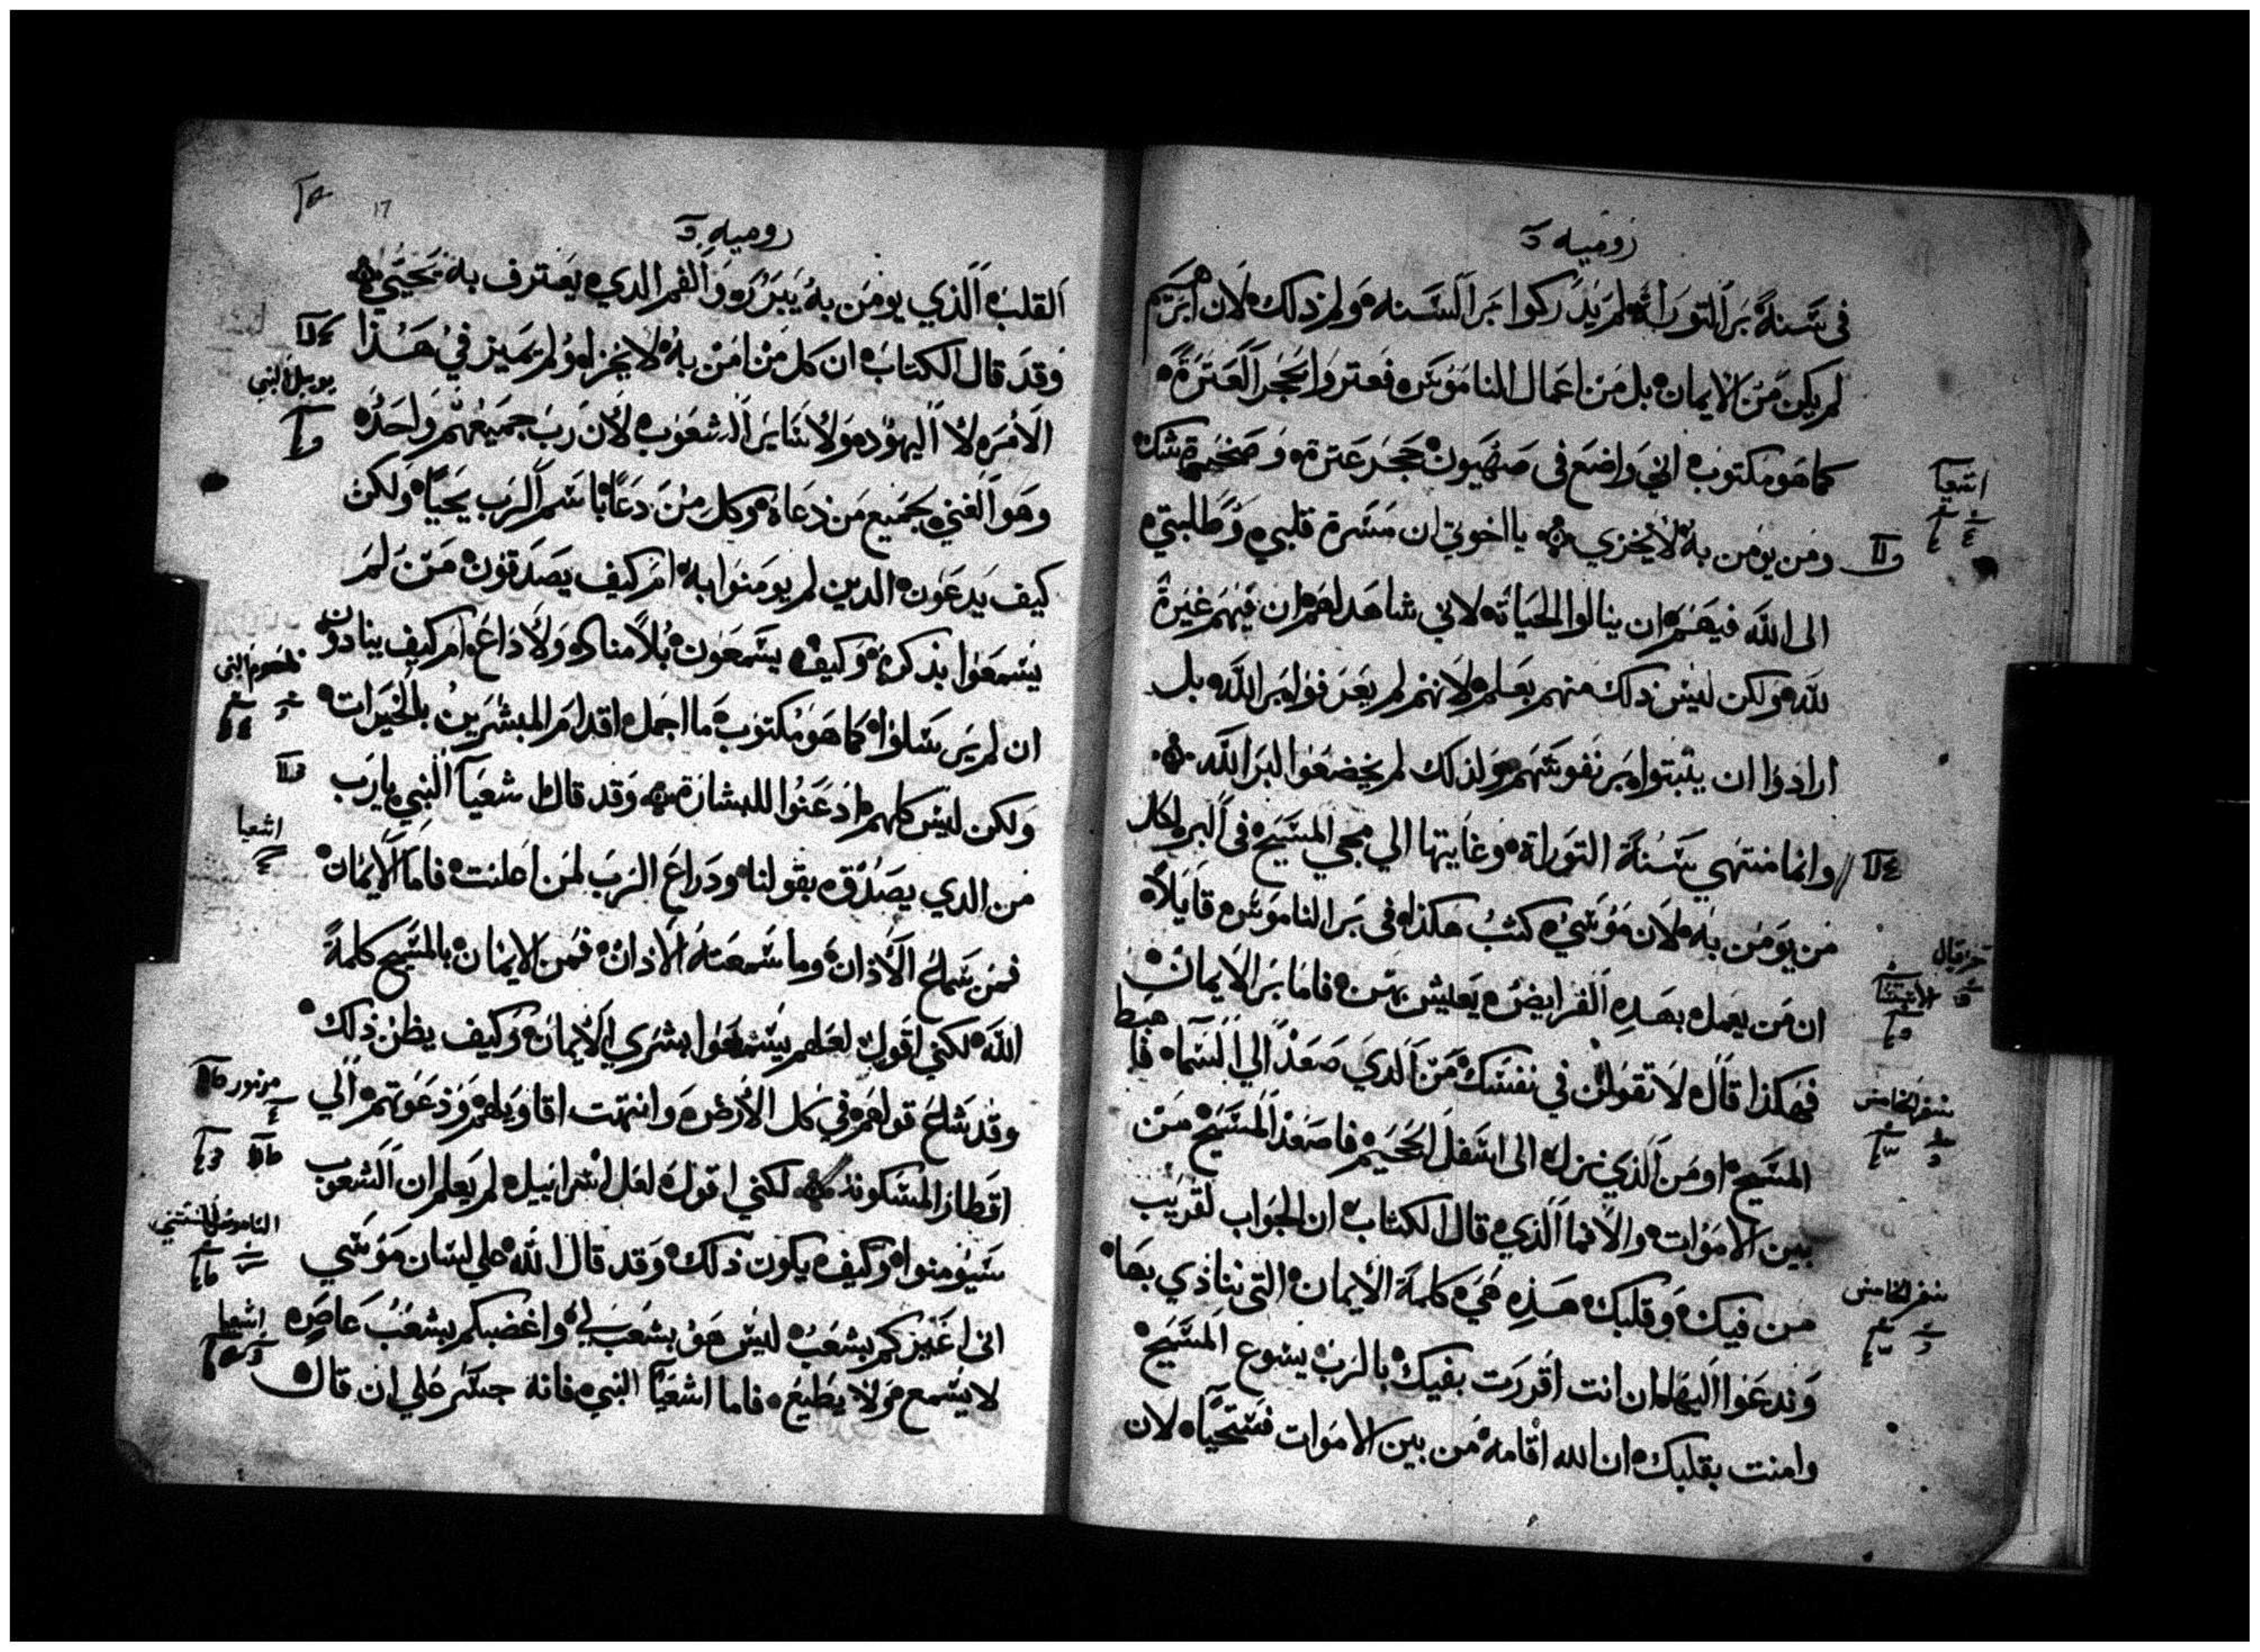 روميه
في سنة بر التوراة لم يدركوا بر السنه ولم ذلك لان برهم
لم يكن من الايمان بل من اعمال الناموس فعتروا بحجر العترة
كما هو مكتوب اني واضع في صهيون حجر عترة وصخرة شك
اشعيا
ومن يومن به لا يخزي يا اخوتي ان مسرة قلبي وطلبتي
الى الله فيهم ان ينالوا الحياة لاني شاهد لهم ان فيهم غيرة
لله ولكن ليس ذلك منهم بعلم لانهم لم يعرفوا بر الله بل
ارادوا ان يتبتوا بر نفوسهم ولذلك لم يخضعوا لبر الله
وانما منتهي سنة التوراة وغايتها الي مجي المسيح في البر لكل
من يومن به لان موسي كتب هكذا في بر الناموس قايلا
حزقيال
ان من يعمل بهذه الفرايض يعيش بهن فاما بر الايمان
فهكذا قال لا تقولن في نفسك من الذي صعد الي السما فاهبط
سفر الخامس
المسيح او من الذي نزل الى اسفل الجحيم فاصعد المسيح من
بين الاموات والا فما الذي قال الكتاب ان الجواب لقريب
سفر الخامس
من فيك وقلبك هذه هي كلمة الايمان التي ننادي بها
وندعوا اليها ان انت اقررت بفيك بالرب يسوع المسيح
وامنت بقلبك ان الله اقامه من بين الاموات فستحيا لان
17
روميه
القلب الذي يومن به يبرره والفم الذي يعترف به يحيي
وقد قال الكتاب ان كل من امن به لا يخزا ولم يميز في هذا
يوييل النبي
الامر لا اليهود ولا ساير الشعوب لان رب جميعهم واحد
وهو الغني بجميع من دعاه وكل من دعا باسم الرب يحيا ولكن
كيف يدعون الدين لم يومنوا به ام كيف يصدقون من لم
يسمعوا بذكره وكيف يسمعون بلا مناد ولا داع ام كيف ينادون
ناحوم النبي
ان لم يرسلوا كما هو مكتوب ما اجمل اقدام المبشرين بالخيرات
ولكن ليس كلهم ادعنوا للبشارة وقد قال شعيا النبي يا رب
اشعيا
من الدي يصدق بقولنا ودراع الرب لمن اعلنت فاما الايمان
فمن سماع الاذان وما سمعته الاذان فمن الايمان بالمسيح كلمة
الله لكني اقول لعلهم يسمعوا بشري الايمان وكيف يظن ذلك
مزمور
وقد شاع قولهم في كل الارض وانتهت اقاويلهم ودعوتهم الي
اقطار المسكونة لكني اقول لعل اسرائيل لم يعلم ان الشعوب
سيومنوا وكيف يكون ذلك وقد قال الله على لسان موسي
اني اغيركم بشعب ليس هو بشعب لي واغضبكم بشعب عاص
اشعيا
لا يسمع ولا يطيع فاما اشعيا النبي فانه جسر علي ان قال